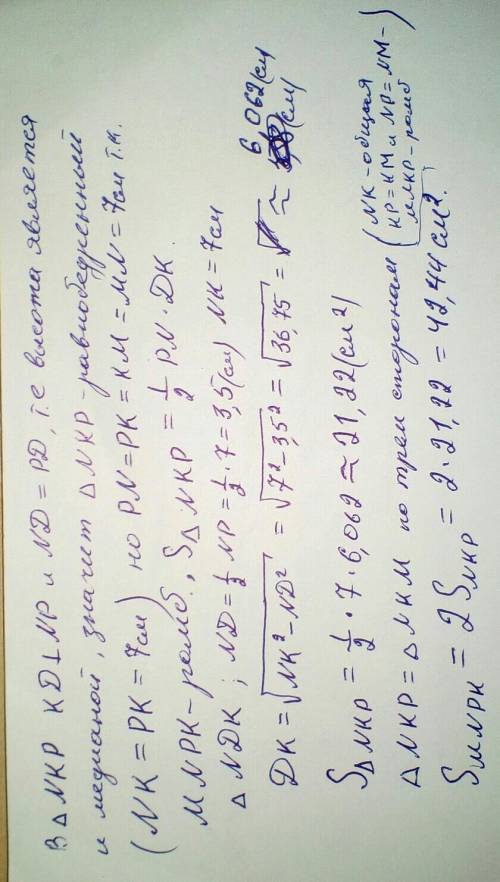 В △ NKP KD⊥NP и ND = PD, т.е высота является
и медианой, значит △ NKP - равнобедренный
(NK = PK = 7см) но PN = PK = KM = MN = 7см т.к.
MNPK - ромб., S△NKP = 1/2 PN · DK.
△ NDK ; ND = 1/2 NP = 1/2 · 7 = 3,5 (см) NK = 7см
DK = √(NK² - ND²) = √(7² - 3,5²) = √36,75 = ≈ 6,062 (см)
(см)
S△NKP = 1/2 · 7 · 6,062 ≈ 21,22 (см²)
△ NKP = △ NKM по трем сторонам (NK - общая
KP = KM и NP = NM -
MNKP - ромб
S MNPK = 2S NKP = 2 · 21,22 = 42,44 см².